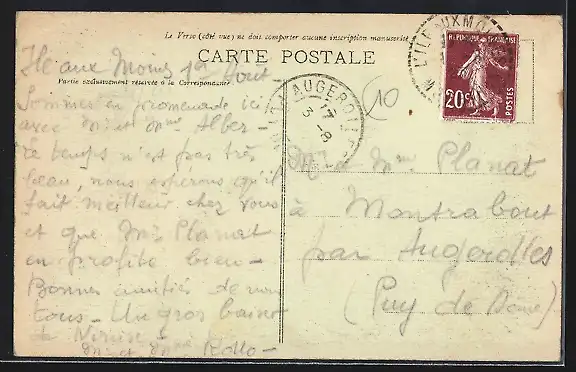 Le Verso (côté vue) ne doit comporter aucune inscription manuscrite
CARTE POSTALE
Partie exclusivement réservée à la Correspondance
Ile aux Moines 1er Août -
Sommes en promenade ici
avec Mr et Mme Alber -
Le temps n'est pas très
beau, nous espérons qu'il
fait meilleur chez vous
et que Mr Planat
en profite bien -
Bonnes amitiés de nous
tous - Un gros baiser
de
Mr et Mme Rollo -
L'ILE AUX MOINES
RÉPUBLIQUE FRANÇAISE
20c
POSTES
AUGEROLLES
3 -8
10
Mr et Mme Planat
à Montrabout
par Augerolles
(Puy de Dôme)